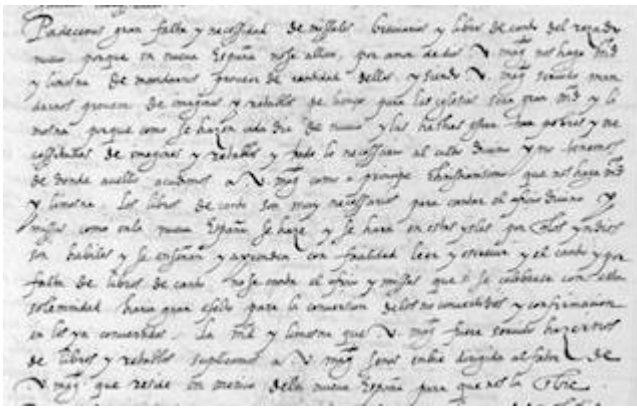 Padecemos gran falta y necessidad de missales breviarios y libros de canto del rezado
nuevo porque en nueva España no se allan, por amor de dios V. magt nos haga md
y limosna de mandarnos proveer de cantidad dellos y siendo V. magt servido man
darnos proveer de imagines y retablos de lienço para las iglesias sera gran md y li
mosna porque como se hazen cada dia de nuevo y las hechas estan tan pobres y ne
cessitadas de imagines y retablos y todo lo necessario al culto divino y no tenemos
de donde avello acudimos a V. magt como a principe christianissimo que nos haga md
y limosna. Los libros de canto son muy necessarios para cantar el oficio divino y
missas como en la nueva España se haze y se hara en estas yslas por que los yndios
son habiles y se enseñan y aprenden con facilidad leer y escrevir y el canto y por
falta de libros de canto no se canta el oficio y missas que si se celebrase con esta
solemnidad haria gran efecto para la conversion de los no convertidos y confirmacion
en los ya convertidos. La md y limosna que V. magt fuere servido hazernos
de libros y retablos suplicamos a V. magt se nos enbie dirigida al fator de
V. magt que reside en mexico dela nueva España para que nos la enbie.